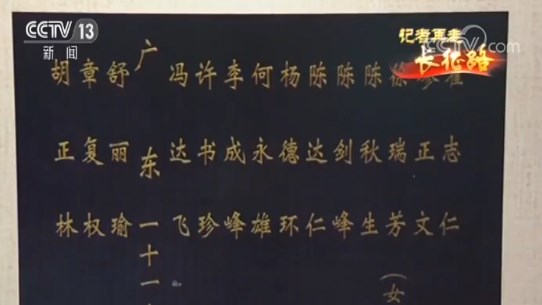 CCTV 13
新闻
记者再走
长征路
胡正林
章复权
舒丽瑜
广东一十一
冯达飞
许书珍
李成峰
何永雄
杨德环
陈达仁
陈剑峰
陈秋生
徐瑞芳（女
正文
志仁